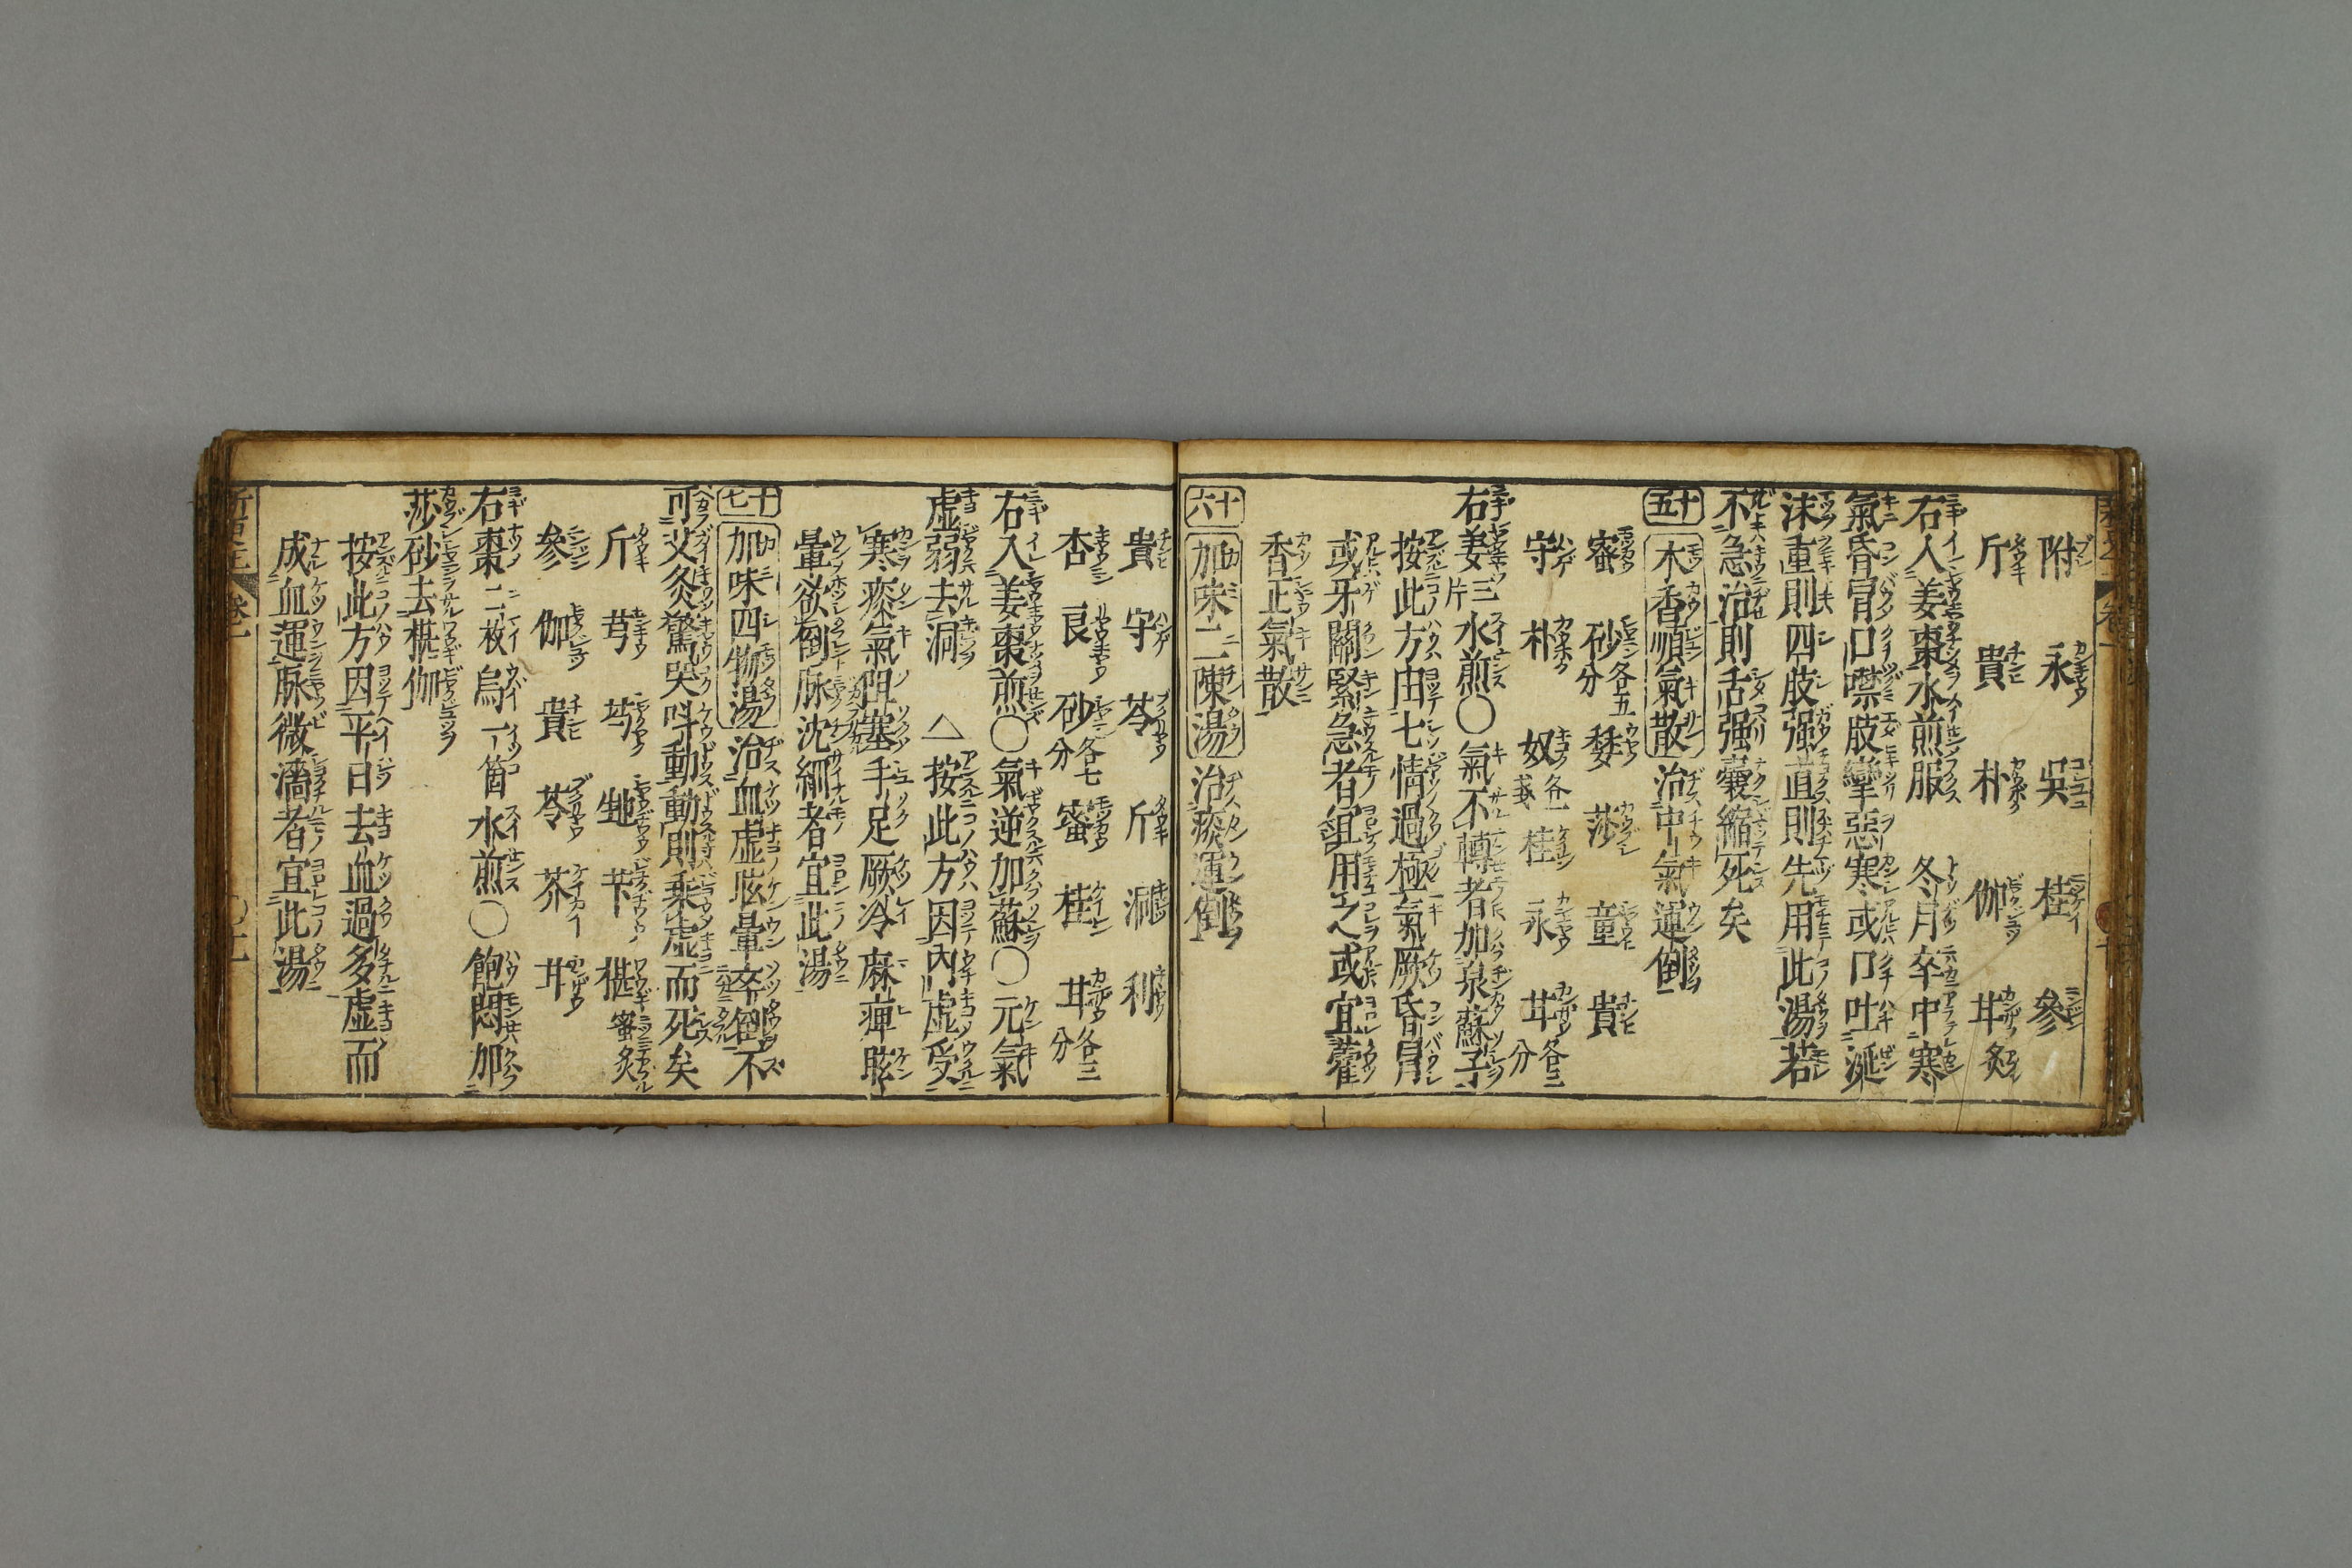 附 永 吳 桂 參
斤 貴 朴 伽 甘炙
右入姜棗水煎服 冬月卒中寒
氣昏冒口噤肢攣惡寒或口吐涎
沫重則四肢强直則先用此湯若
不急治則舌强囊縮死矣
十五 木香順氣散 治中氣運倒
蜜 砂各五分 婺 莎 童 貴
守 朴 奴各一戔 桂 永 甘各三分
右姜三片水煎〇氣不轉者加泉蘇子
按此方由七情過極氣厥昏冒
或牙關緊急者宜用之或宜藿
香正氣散
十六 加味二陳湯 治痰運倒
貴 守 苓 斤 利
杏 良 砂各七分 蜜 桂 甘各三分
右入姜棗煎〇氣逆加蘇〇元氣
虛弱去洞 △按此方因內虛受
寒痰氣阻塞手足厥冷麻痺眩
暈欲倒脉沈細者宜此湯
十七 加味四物湯 治血虛眩暈卒倒不
可艾灸驚哭呌動動則乗虛而死矣
斤 芎 芍 𡉄 芐 椹蜜炙
參 伽 貴 苓 芥 甘
右棗二枚烏一箇水煎〇飽悶加
莎砂去椹伽
按此方因平日去血過多虛而
成血運脉微濇者宜此湯